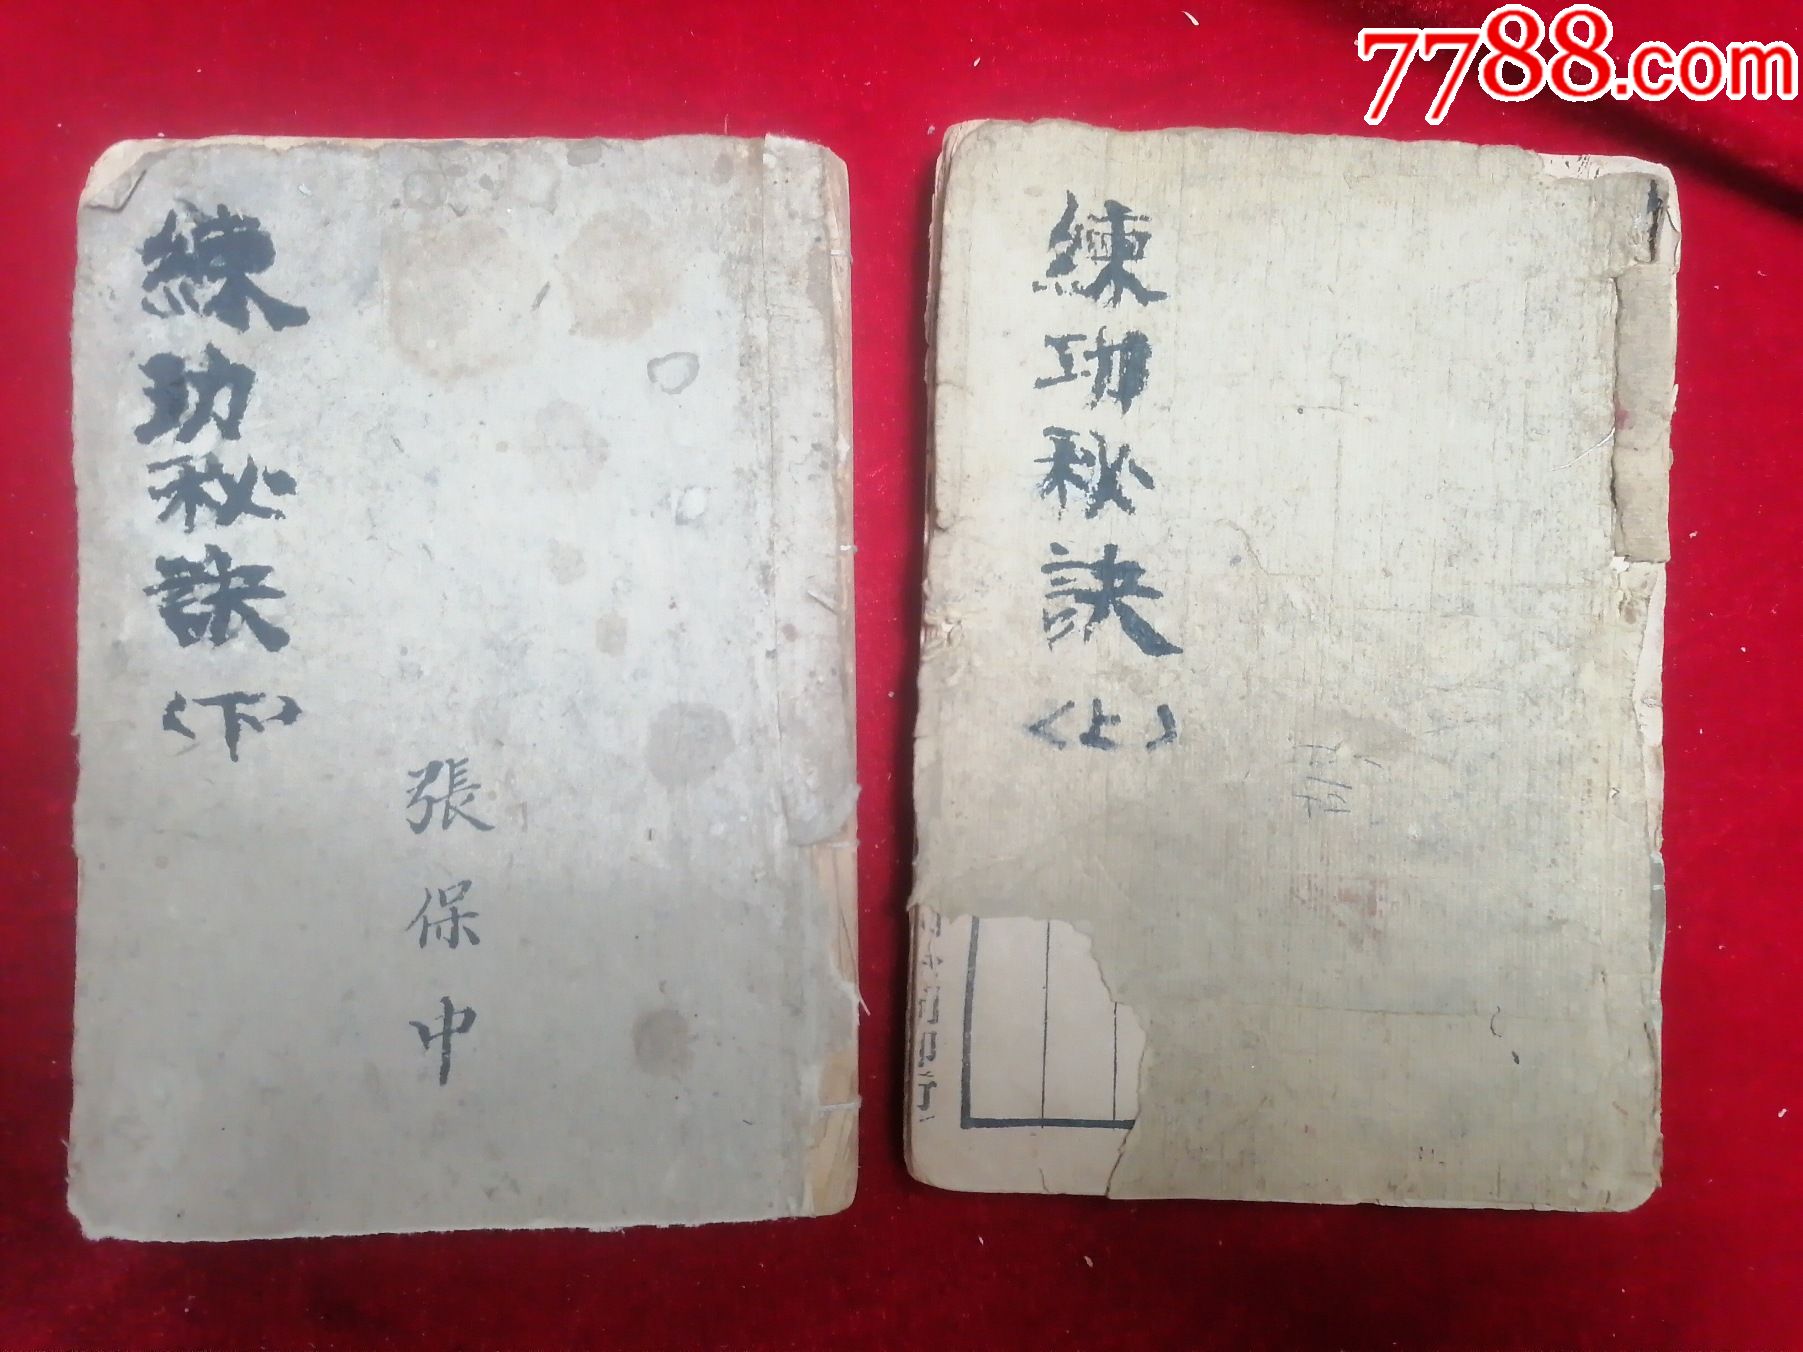 7788.com
練功秘訣
(上)
練功秘訣
(下)
張保中